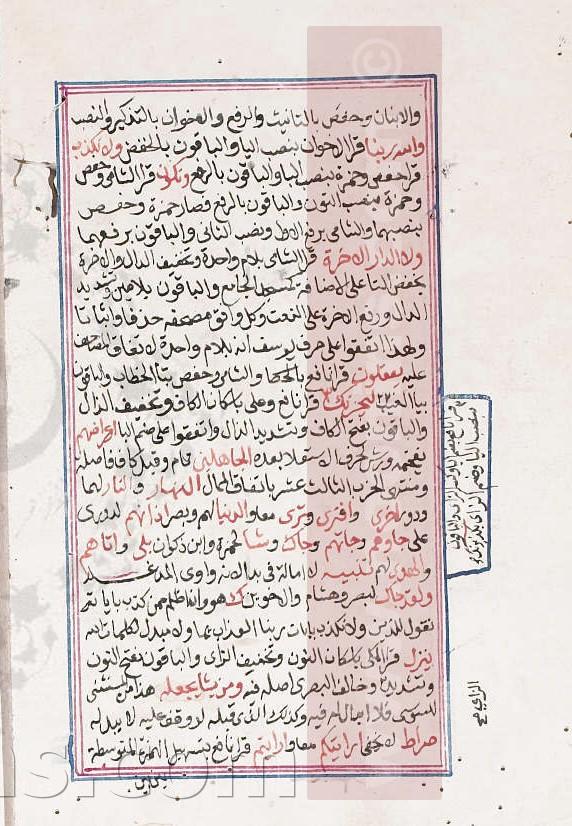 والابنان وحفص بالتانيث والرفع والاخوان بالتذكير والنصب
والله ربنا قرا الاخوان بنصب اليا والباقون بالخفض ولا نكذب
قرا حفص وحمزة بنصب البا والباقون بالرفع ونكون قرا الشامي وحفص
وحمزة بنصب النون والباقون بالرفع فصار حمزة وحفص
بنصبهما والشامي برفع الاول ونصب الثاني والباقون برفعهما
ولا الدار الاخرة قرا الشامي بلام واحدة وتخفيف الدال والاخرة
بخفض التا على الاضافة كمسجد الجامع والباقون بلامين وتشديد
الدال ورفع الاخرة على النعت وكل وافق مصحفه حذفا واثباتا
ولهذا اتفقوا على حرف يوسف انه بلام واحدة لاتفاق المصاحف
عليه يعقلون قرا نافع والشامي وحفص بتا الخطاب والباقون
بيا الغيب ليحزنك قرا نافع وعلي باسكان الكاف وتخفيف الذال
والباقون بفتح الكاف وتشديد الذال واتفقوا على ضم اليا اعراضهم
لحرف الاستعلا بعده الجاهلين تام وقيل كاف فاصلة
ومنتهى الحزب الثالث عشر باتفاق الممال النهار والنار لهما
ودوري اخرى وافترى وترى معا والدنيا لهم وبصر اذانهم لدوري
علي جاوهم وجاتهم وجاك وشا لحمزة وابن ذكوان بلى واتاهم
والهدى لهم تنبيه لا امالة في بدا لانه واوي المدغم
ولقد جاك لبصر وهشام والاخوين ك هو وانه اظلم ممن كذب باياته
نقول للذين ولا نكذب بايات ربنا العذاب بما ولا مبدل لكلمات الله
ينزل قرا المكي باسكان النون وتخفيف الزاي والباقون بفتح النون
وتشديد وخالف البصري اصله فيه ومن يشا يجعله هذا من المستثنى
للسوسي فلا ابدال له فيه وكذلك الذي قبله لو وقف عليه لا يبدله
صراط لا يخفى ارايتكم معا وارايتم قرا نافع بتسهيل الهمزة المتوسطة